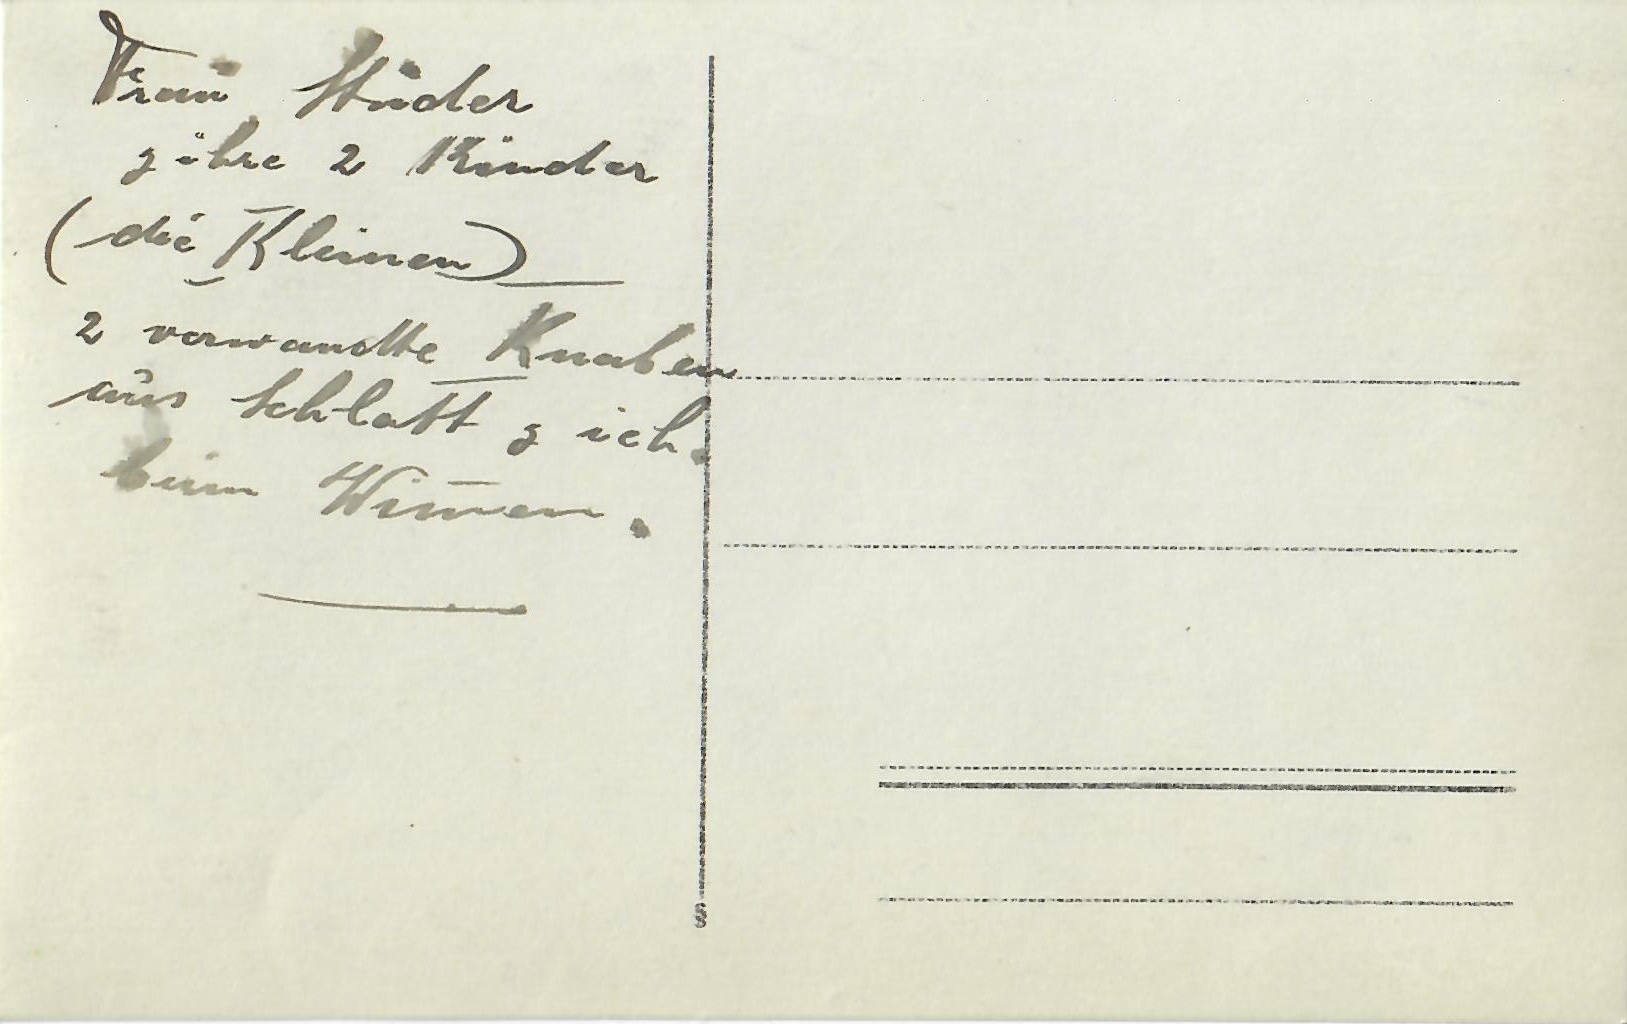 Frau Studer
ihre 2 Kinder
(die Kleinen)
2 verwandte Knaben
aus Schlatt & ich.
beim Wimen.